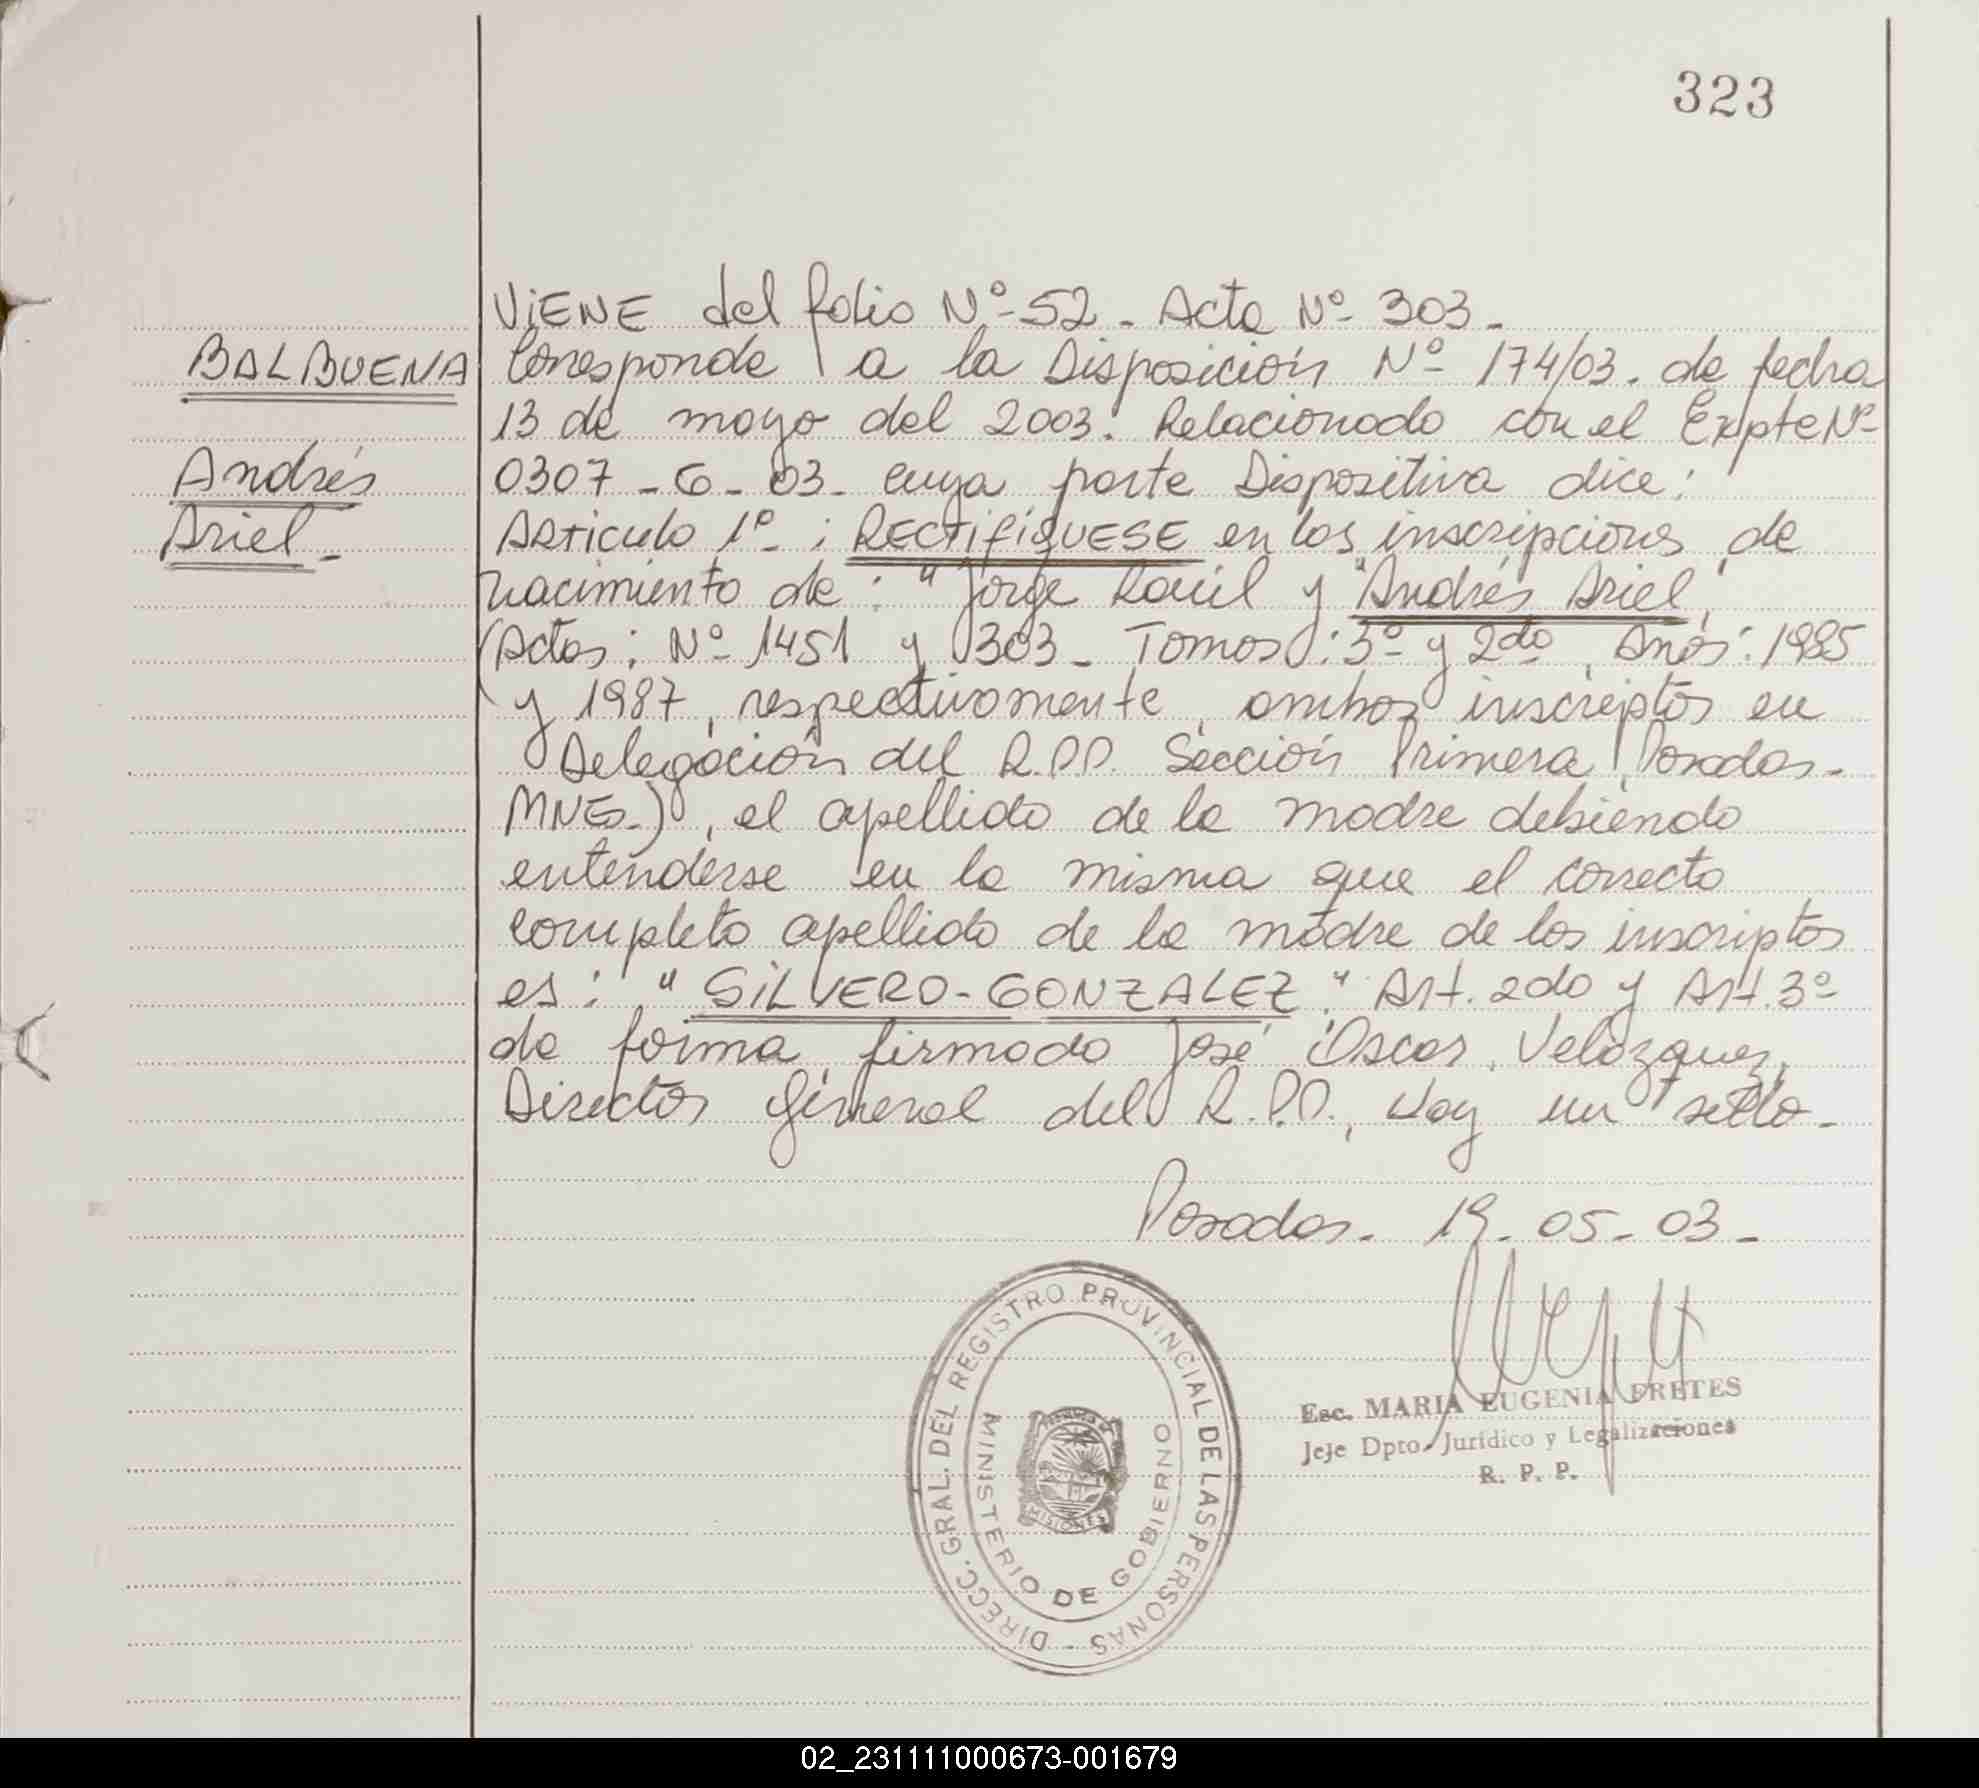 323
VIENE del folio Nº 52. Acta Nº 303.
BALBUENA
Corresponde a la Disposición Nº 174/03. de fecha
13 de mayo del 2003. Relacionado con el Expte Nº
Andrés
0307-G-03. cuya parte Dispositiva dice:
Ariel.
Articulo 1º: RECTIFIQUESE en las inscripciones de
nacimiento de: "Jorge Raúl y "Andrés Ariel",
(Actas: Nº 1451 y 303. Tomos: 3º y 2do, Años: 1985
y 1987, respectivamente, ambos inscriptos en
Delegación del R.P.P. Sección Primera, Posadas.
MNES.), el apellido de la madre debiendo
entenderse en la misma que el correcto
completo apellido de la madre de los inscriptos
es: "SILVERO-GONZALEZ". Art. 2do y Art. 3º
de forma, firmado José Oscar, Velázquez,
Director General del R.P.P., Hay un sello.
Posadas. 19-05-03-
DIRECC. GRAL. DEL REGISTRO PROVINCIAL DE LAS PERSONAS -
MINISTERIO DE GOBIERNO
MISIONES
Esc. MARIA EUGENIA FRETES
Jefe Dpto. Jurídico y Legalizaciones
R. P. P.
02_231111000673-001679